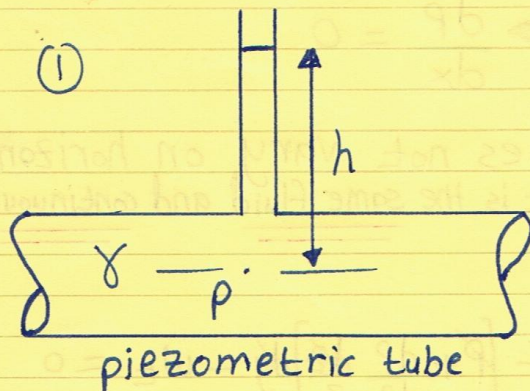 ①
h
γ
p
piezometric tube